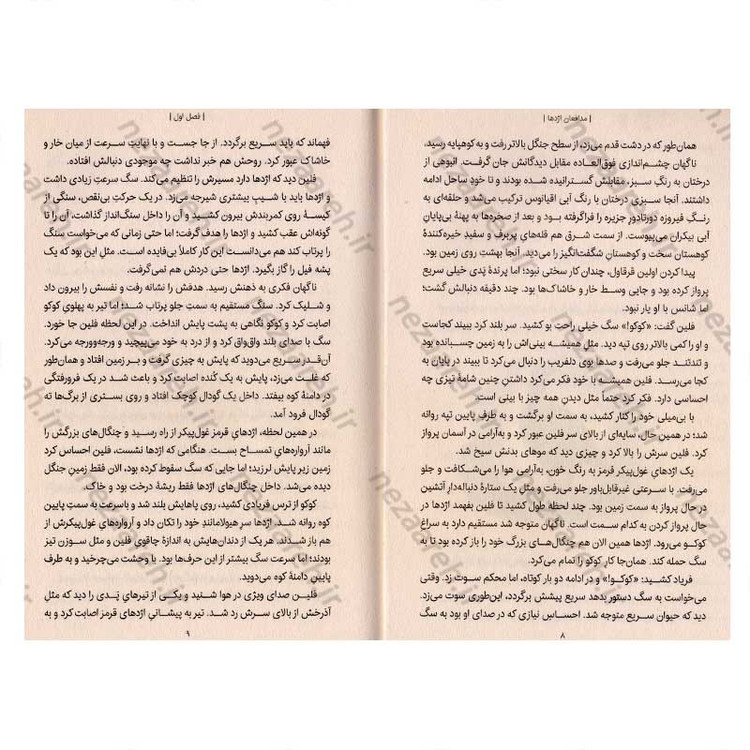 | مدافعان اژدها |
همان‌طور که در دشت قدم می‌زد، از سطح جنگل بالاتر رفت و به کوهپایه رسید.
ناگهان چشم‌اندازی فوق‌العاده مقابل دیدگانش جان گرفت. انبوهی از
درختان به رنگِ سبز، مقابلش گسترانیده شده بودند و تا خودِ ساحل ادامه
داشتند. آنجا سبزی درختان با رنگ آبی اقیانوس ترکیب می‌شد و حلقه‌ای به
رنگِ فیروزه دورتادور جزیره را فراگرفته بود و بعد از صخره‌ها به پهنهٔ بی‌پایانِ
آبی بیکران می‌پیوست. از سمت شرق هم قله‌های پربرف و سفیدِ خیره‌کنندهٔ
کوهستان سخت و کوهستانِ شگفت‌انگیز را می‌دید. آنجا بهشتِ روی زمین بود.
پیدا کردن اولین قرقاول، چندان کار سختی نبود؛ اما پرنده پَدی خیلی سریع
پرواز کرده بود و جایی وسط خار و خاشاک‌ها بود. چند دقیقه دنبالش گشت؛
اما شانس با او یار نبود.
فلین گفت: «کوکو!» سگ خیلی راحت بو کشید. سر بلند کرد ببیند کجاست
و او را کمی بالاتر روی تپه دید. مثل همیشه بینی‌اش را به زمین چسبانده بود
و تندتند جلو می‌رفت و صدها بوی دلفریب را دنبال می‌کرد تا ببیند در پایان به
کجا می‌رسد. فلین همیشه با خود فکر می‌کرد داشتنِ چنین شامهٔ تیزی چه
احساسی دارد. فکر کرد حتماً مثل دیدن همه چیز با بینی است.
با بی‌میلی خود را کنار کشید، به سمت او برگشت و به طرف پایین تپه روانه
شد؛ در همین حال، سایه‌ای از بالای سر فلین عبور کرد و به‌آرامی در آسمان پرواز
کرد. فلین سرش را بالا کرد و چیزی دید که موهای بدنش سیخ شد.
یک اژدهای غول‌پیکر قرمز به رنگ خون، به‌آرامی هوا را می‌شکافت و جلو
می‌رفت. با سرعتی غیرقابل‌باور جلو می‌رفت و مثلِ یک ستارهٔ دنباله‌دارِ آتشین
در حال پرواز به سمت زمین بود. چند لحظه طول کشید تا فلین بفهمد اژدها در
حال پرواز کردن به کدام سمت است. ناگهان متوجه شد مستقیم دارد به سراغ
کوکو می‌رود. اژدها همین الان هم چنگال‌های بزرگ خود را باز کرده بود تا به
سگ حمله کند. همان‌جا کار کوکو را تمام می‌کرد.
فریاد کشید: «کوکو!» و در ادامه دو بار کوتاه، اما محکم سوت زد. وقتی
می‌خواست به سگ دستور بدهد سریع پیشش برگردد، این‌طوری سوت می‌زد.
دید که حیوان سریع متوجه شد. احساسِ نیازی که در صدای او بود به سگ
۸
| فصل اول |
فهماند که باید سریع برگردد. از جا جست و با نهایتِ سرعت از میان خار و
خاشاک عبور کرد. روحش هم خبر نداشت چه موجودی دنبالش افتاده.
فلین دید که اژدها دارد مسیرش را تنظیم می‌کند. سگ سرعتِ زیادی داشت
و اژدها باید با شیب بیشتری شیرجه می‌زد. در یک حرکتِ بی‌نقص، سنگی از
کیسهٔ روی کمربندش بیرون کشید و آن را داخل سنگ‌انداز گذاشت، آن را تا
گونه‌اش عقب کشید و اژدها را هدف گرفت؛ اما حتی زمانی که می‌خواست سنگ
را پرتاب کند هم می‌دانست این کار کاملاً بی‌فایده است. مثلِ این بود که یک
پشه فیل را گاز بگیرد. اژدها حتی دردش هم نمی‌گرفت.
ناگهان فکری به ذهنش رسید. هدفش را نشانه رفت و نفسش را بیرون داد
و شلیک کرد. سنگ مستقیم به سمت جلو پرتاب شد؛ اما تیر به پهلوی کوکو
اصابت کرد و کوکو نگاهی به پشت پایش انداخت. در این لحظه فلین جا خورد.
سگ با صدای بلند واق‌واق کرد و از درد به خود می‌پیچید و ورجه‌وورجه می‌کرد.
آن‌قدر سریع می‌دوید که پایش به چیزی گرفت و بر زمین افتاد و همان‌طور
که غلت می‌زد، پایش به یک کُنده اصابت کرد و باعث شد در یک فرورفتگی
در دامنهٔ کوه بیفتد. داخل یک گودال کوچک افتاد و روی بستری از برگ‌ها ته
گودال فرود آمد.
در همین لحظه، اژدهای قرمز غول‌پیکر از راه رسید و چنگال‌های بزرگش را
مانند آرواره‌های تمساح بست. هنگامی که اژدها نشست، فلین احساس کرد
زمین زیر پایش لرزید؛ اما جایی که سگ سقوط کرده بود، الان فقط زمین جنگل
دیده می‌شد. داخل چنگال‌های اژدها فقط ریشهٔ درخت بود و خاک.
کوکو از ترس فریادی کشید، روی پاهایش بلند شد و باسرعت به سمتِ پایین
کوه روانه شد. اژدها سرِ هیولامانندِ خود را تکان داد و آرواره‌های غول‌پیکرش از
هم باز شدند. هر یک از دندان‌هایش به اندازهٔ چاقوی فلین و مثل سوزن تیز
بودند؛ اما سرعت سگ بیشتر از این حرف‌ها بود. با وحشت می‌چرخید و به طرف
پایین دامنهٔ کوه می‌دوید.
فلین صدای ویژی در هوا شنید و یکی از تیرهای پَدی را دید که مثلِ
آذرخش از بالای سرش رد شد. تیر به پیشانیِ اژدهای قرمز اصابت کرد و به
۹
nezaareh.ir